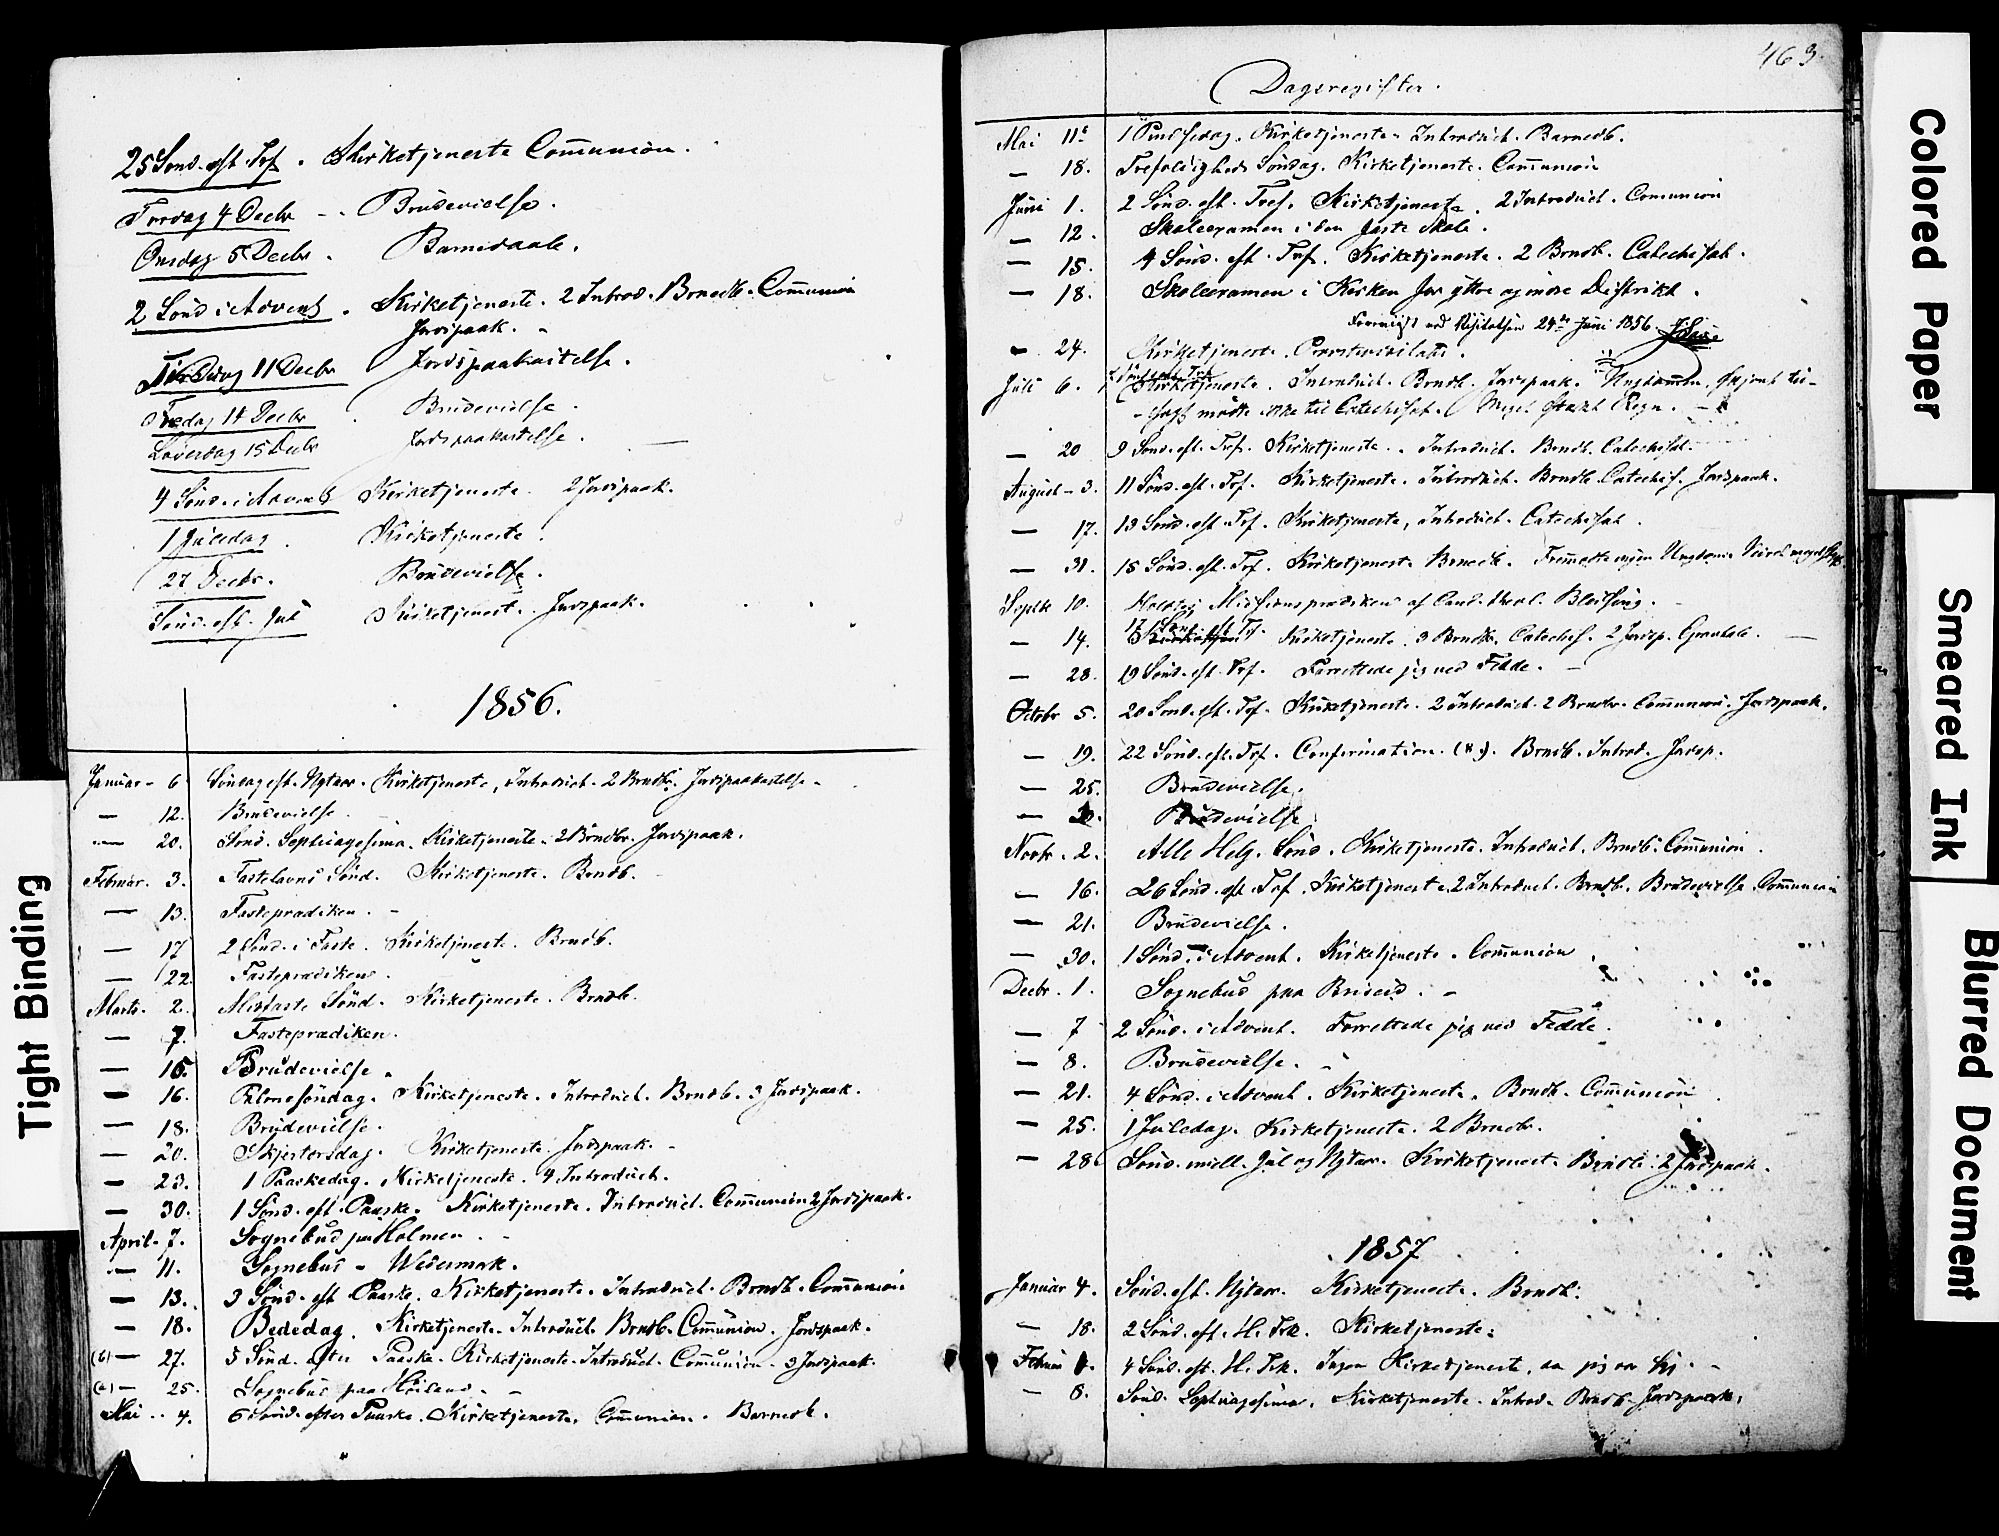 25 Sönd. eft. Tref. Kirketjeneste Com̄union.
Tirsdag 4 Decbr - Brudevielse.
Onsdag 5 Decbr. Barnedaab.
2 Sönd i Advent. Kirketjeneste. 2 Introd. Brnedb. Com̄union
Jordspaak.
Tirsdag 11 Decbr Jordspaakastelse.
Fredag 14 Decbr Brudevielse.
Löverdag 15 Decbr Jordspaakastelse.
4 Sönd. i Advent Kirketjeneste. 2 Jordspaak.
1 Juledag. Kirketjeneste.
27 Decbr. Brudevielse.
Sönd. eft. Jul Kirketjenest. Jordspaak.
1856.
Januar - 6 Söndag eft. Nytaar. Kirketjeneste, Introduct. 2 Brndb. Jordspaakastelse.
— 12. Brudevielse.
— 20. Sönd. Septuagesima. Kirketjeneste. 2 Brndb. Jordspaak.
Februar. 3. Fastelavns Sönd. Kirketjeneste. Brndb.
— 13. Fasteprædiken.
— 17 2 Sönd. i Faste. Kirketjenest. Brndb.
— 22 Fasteprædiken.
Marts. 2. Midfaste Sönd. Kirketjeneste. Brndb.
— 7. Fasteprædiken.
— 15. Brudevielse.
— 16. Palmesöndag. Kirketjeneste. Introduct. Brndb. 3 Jordspaak.
— 18. Brudevielse.
— 20. Skjertorsdag. Kirketjeneste. Jordspaak.
— 23. 1 Paaskedag. Kirketjeneste. 4 Introduct.
— 30. 1 Sönd. eft. Paaske. Kirketjeneste. Introduct. Com̄union 2 Jordspaak.
April - 7. Sognebud paa Holmen.
— 11. Sognebud - Wedermark.
— 13. 3 Sönd. eft Paaske. Kirketjeneste. Introduct. Brndb. Com̄union
— 18. Bededag. Kirketjeneste. Introduct. Brndb. Com̄union. Jordspaak.
(b) — 27. 5 Sönd. efter Paaske. Kirketjeneste. Introduct. Com̄union. 3 Jordspaak.
(a) — 25. Sognebud paa Höiland.
Mai .. 4. 6 Sönd. efter Paaske. Kirketjeneste, Com̄union. Barnedb.
463.
Dagsregister.
Mai 11te 1 Pindsedag. Kirketjeneste. Introduct. Barnedb.
— 18. Trefoldigheds Söndag. Kirketjeneste. Com̄union
Juni 1. 2 Sönd. eft. Tref. Kirketjeneste. 2 Introduct. Comunion
— 12. Skoleexamen i den faste Skole.
— 15. 4 Sönd. eft. Tref. Kirketjeneste. 2 Brndb. Catechisat.
— 18. Skoleexamen i Kirken for yttre og indre Distrikt.
Foreviist ved Visitatsen 24de Juni 1856
— 24. Kirketjeneste. Provstevisitats.
Juli 6. Kirketjeneste. Introduct. Brndb. Jordspaak. Ungdommen, skjönt til-
-sagt mödte ikke til Catechisat. Meget stærkt Regn.
— 20 9 Sönd. eft. Tref. Kirketjeneste. Introduct. Brndb. Catechisat.
August - 3. 11 Sönd. eft. Tref. Kirketjeneste. Introduct. Brndb. Catechis. Jordspaak.
— 17. 13 Sönd. eft. Tref. Kirketjeneste, Introduct. Catechisat.
— 31. 15 Sönd. eft. Tref. Kirketjeneste Brnedb. Fremmødte ingen Ungdom.
Septbr 10. Holdtes Missionsprædiken af Cand. theol.
— 14. 17 Sönd. eft. Tr. Kirketjeneste. 3 Brndb. Catechis. 2 Jordsp.
— 28. 19 Sönd. eft. Tref. Forrettede jeg ved Fedde.
Octobr 5. 20 Sönd. eft. Tref. Kirketjeneste. 2 Introduct. 2 Brndb. Com̄union. Jordspaak.
— 19. 22 Sönd. eft. Tref. Confirmation. (8). Brndb. Introd. Jordsp.
— 25. Brudevielse.
— 30. Brudevielse
Novbr. 2. Alle Helg. Sönd. Kirketjeneste. Introduct. Brndb. Com̄union.
— 16. 26 Sönd. eft Tref. Kirketjeneste. 2 Introduct. Brndb. Brudevielse. Com̄union
— 21. Brudevielse.
— 30. 1 Sönd. i Advent. Kirketjeneste. Com̄union
Decbr. 1. Sognebud paa Briseid.
— 7 2 Sönd. i Advent. Forrettede jeg ved Fedde.
— 8. Brudevielse.
— 21. 4 Sönd. i Advent. Kirketjeneste. Brndb. Com̄union
— 25. 1 Juledag. Kirketjeneste. 2 Brndb.
— 28 Sönd. mell. Jul og Nytaar. Kirketjenest. Brndb. 2 Jordspaak.
1857
Januar 4. Sönd. eft. Nytaar. Kirketjeneste. Brndb.
— 18. 2 Sönd. eft. H. Tr. K. Kirketjeneste.
Februar 1. 4 Sönd. eft. H. Tr. K. Ingen Kirketjeneste, da jeg var syg.
— 8. Sönd. Septuagesima. Kirketjeneste. Introd. Brndb. Jordspaak.
Tight Binding
Colored Paper
Smeared Ink
Blurred Document